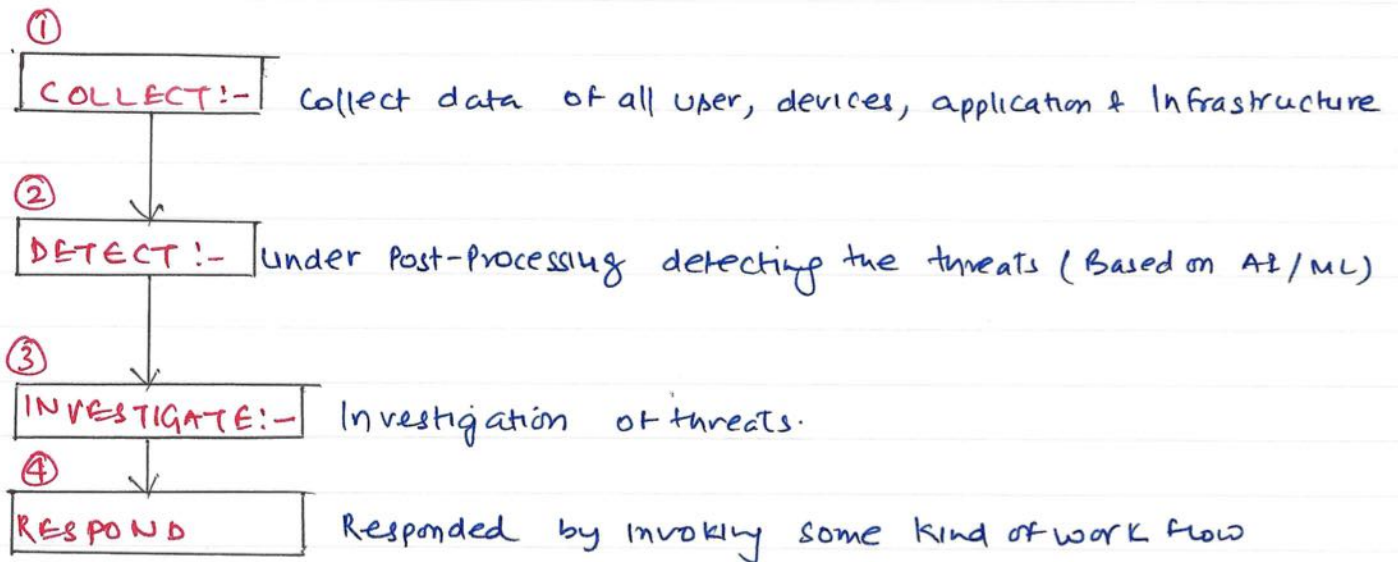 ①
COLLECT:- Collect data of all user, devices, application & Infrastructure
②
DETECT:- under Post-Processing detecting the threats (Based on AI/ML)
③
INVESTIGATE:- Investigation of threats.
④
RESPOND Responded by invoking some kind of work flow